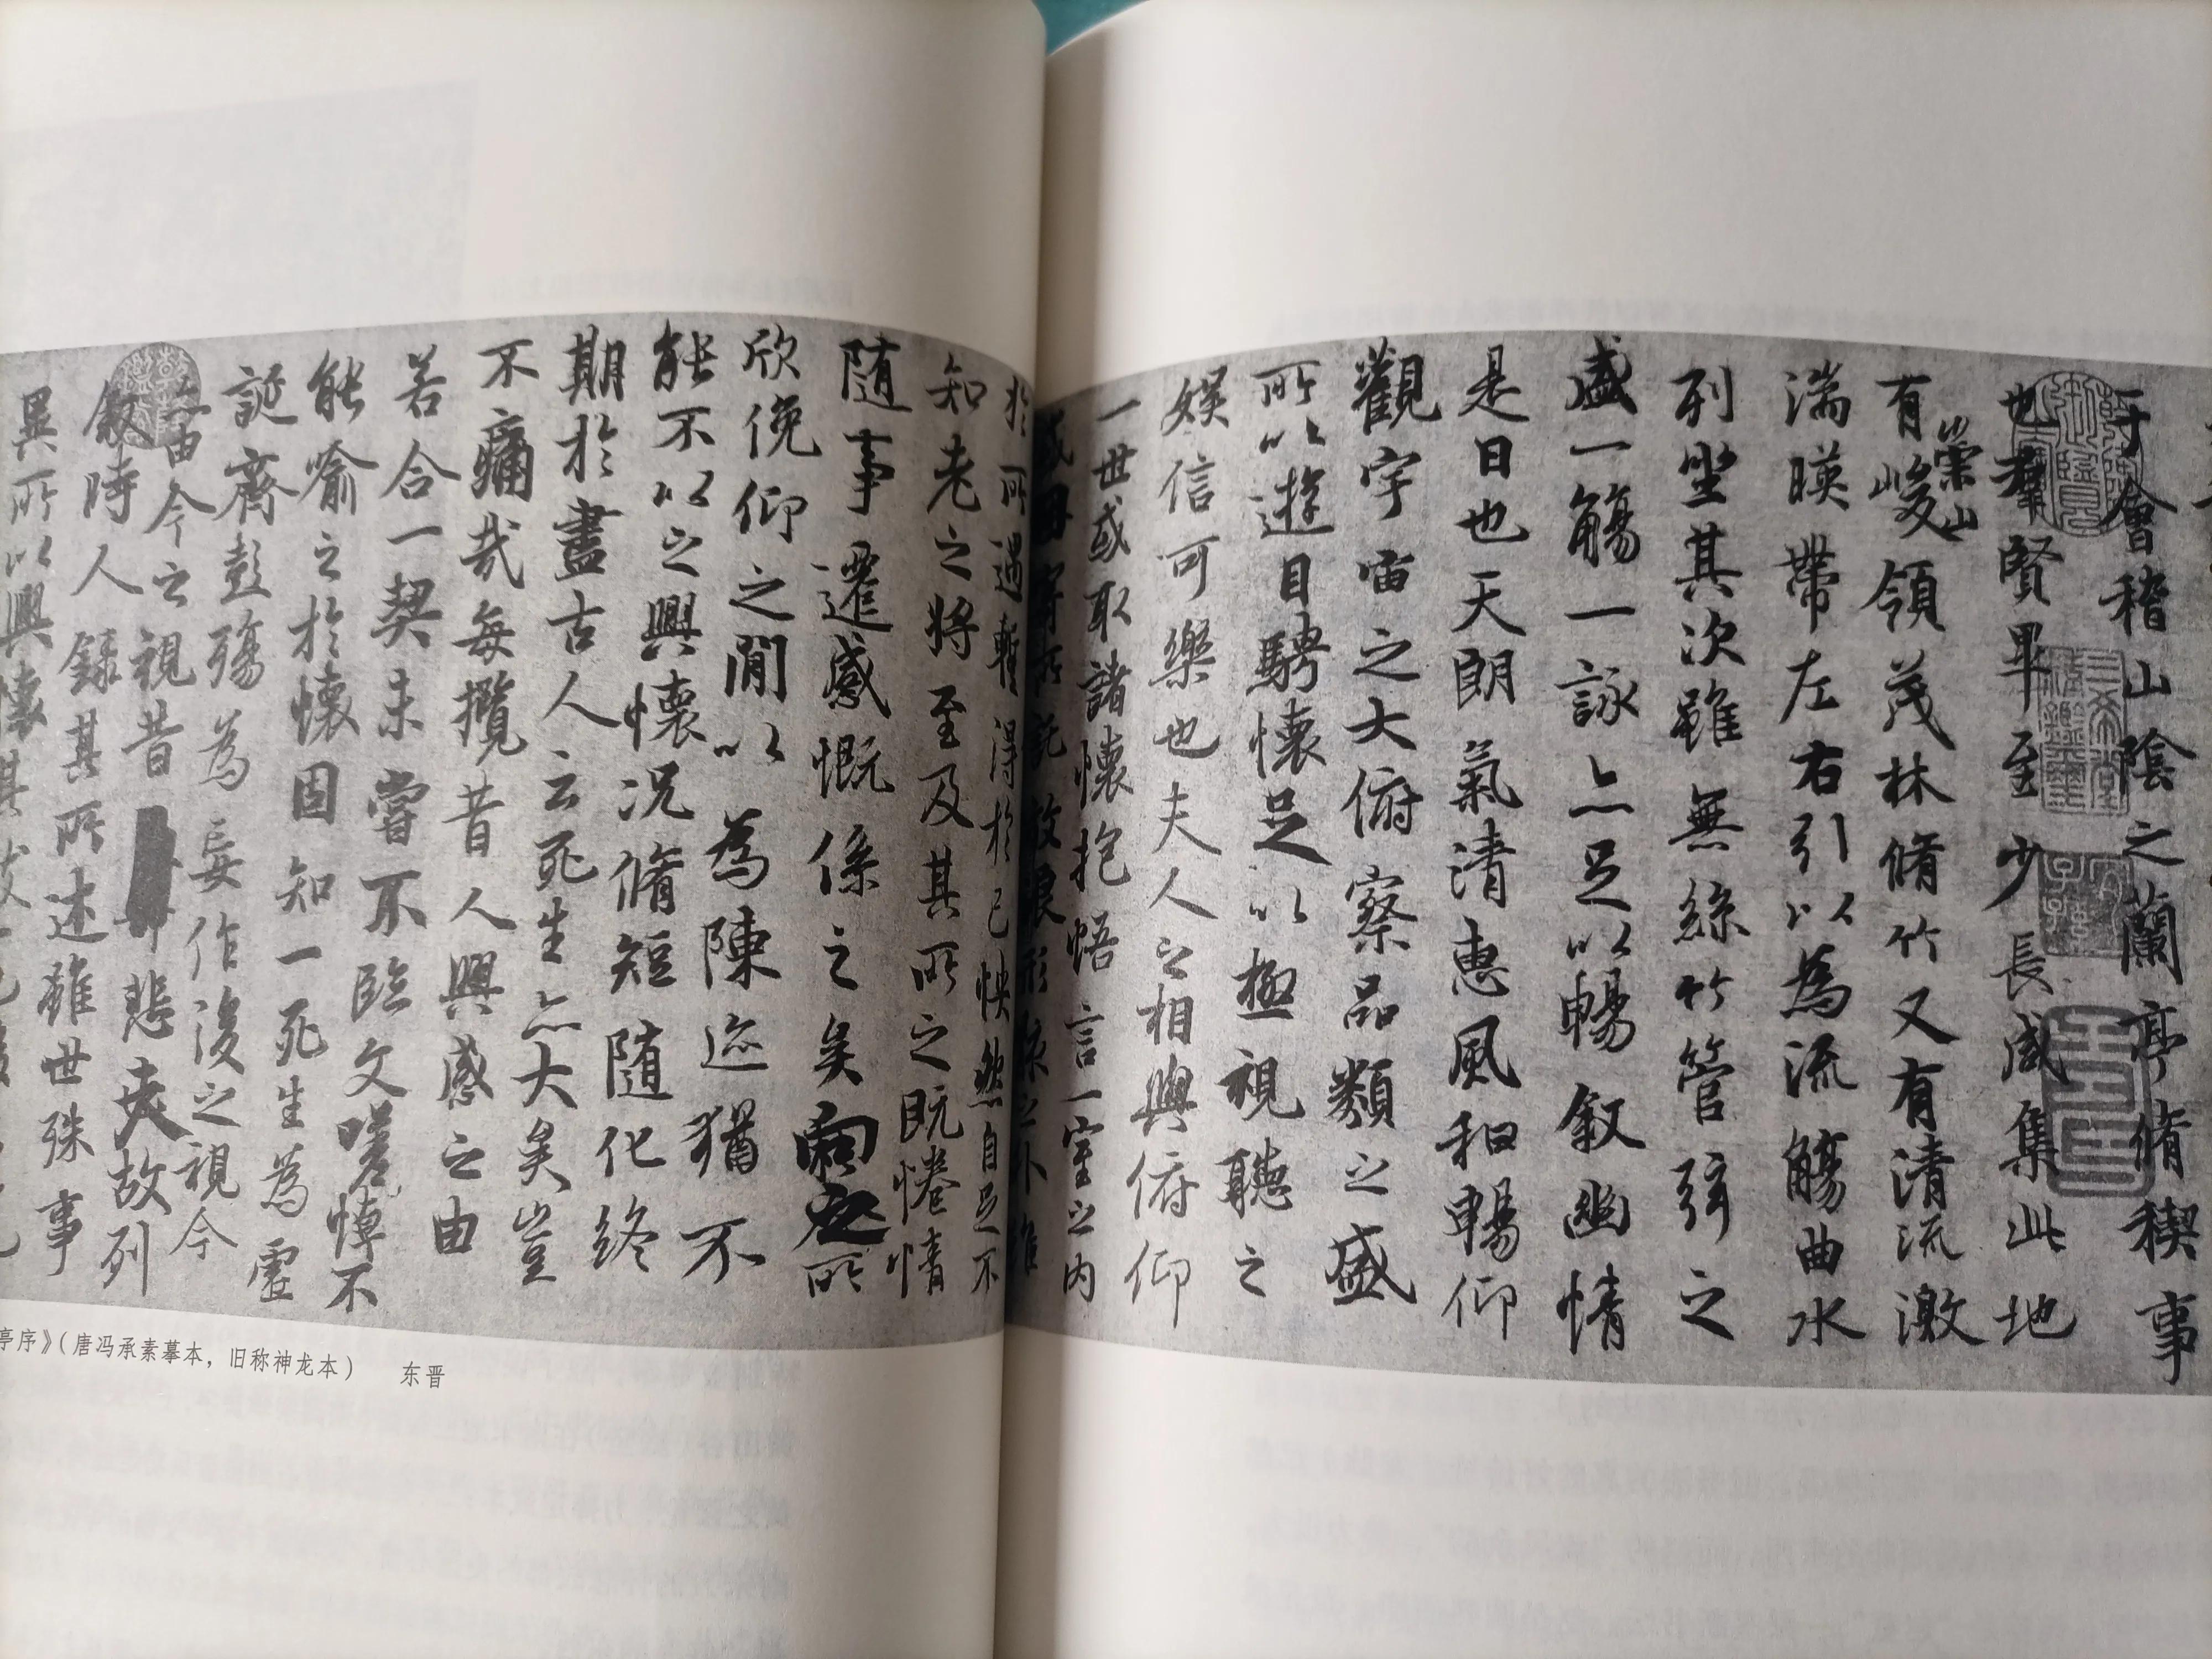 于會稽山陰之蘭亭脩稧事
也羣賢畢至少長咸集此地
有崇山峻領茂林脩竹又有清流激
湍暎帶左右引以為流觴曲水
列坐其次雖無絲竹管弦之
盛一觴一詠亦足以暢叙幽情
是日也天朗氣清惠風和暢仰
觀宇宙之大俯察品類之盛
所以遊目騁懷足以極視聽之
娛信可樂也夫人之相與俯仰
一世或取諸懷抱悟言一室之内
或因寄所託放浪形骸之外雖
於所遇暫得於己怏然自足不
知老之將至及其所之既惓情
隨事遷感慨係之矣向之所
欣俛仰之間以為陳迹猶不
能不以之興懷況脩短隨化終
期於盡古人云死生亦大矣豈
不痛哉每攬昔人興感之由
若合一契未嘗不臨文嗟悼不
能喻之於懷固知一死生為虛
誕齊彭殤為妄作後之視今
亦由今之視昔悲夫故列
叙時人錄其所述雖世殊事
異所以興懷其
亭序》（唐冯承素摹本，旧称神龙本） 东晋